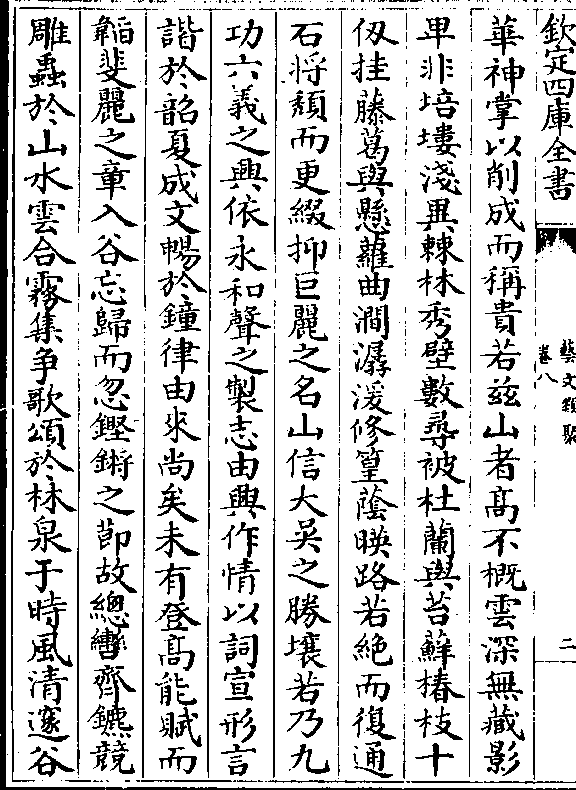 欽定四庫全書
藝文類聚
卷八
二
華神掌以削成而稱貴若兹山者髙不概雲深無藏影
卑非培塿淺異棘林秀壁數尋被杜蘭與苔蘚樁枝十
仭挂藤葛與懸蘿曲澗潺湲修篁蔭暎路若絶而復通
石將頽而更綴抑巨麗之名山信大吴之勝壤若乃九
功六義之興依永和聲之製志由興作情以詞宣形言
諧於韶夏成文暢於鐘律由來尚矣未有登髙能賦而
韜斐麗之章入谷忘歸而忽鏗鏘之節故總轡齊鑣競
雕蟲於山水雲合霧集争歌頌於林泉于時風清邃谷